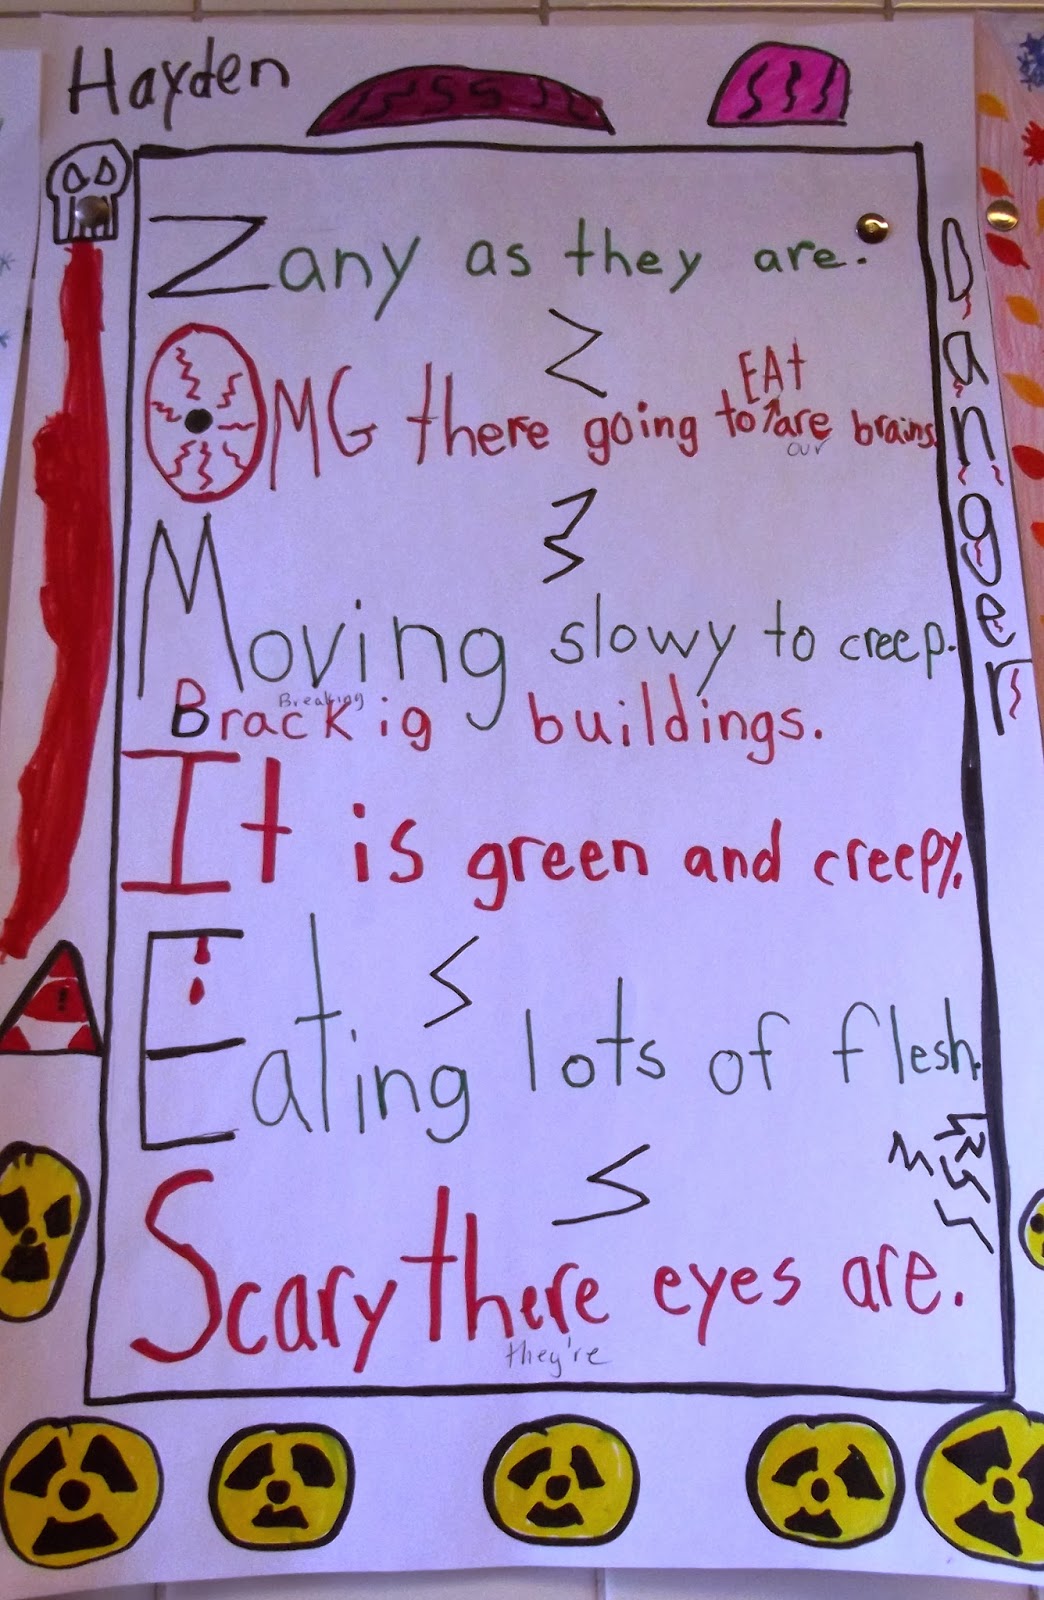 Hayden
Zany as they are.
EAt
OMG there going to are brains.
our
Moving slowy to creep.
Breaking
Brackig buildings.
It is green and creepy.
Eating lots of flesh.
Scary there eyes are.
they're
Danger
!